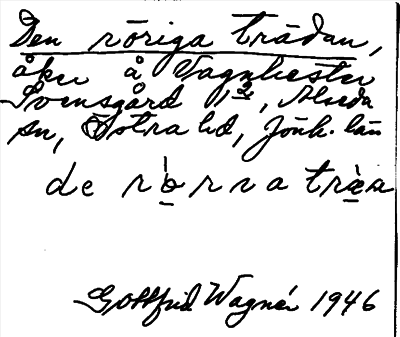 Den röriga trädan,
åker å Vagnhester
Svensgård 1², Alseda
sn, Östra hd, Jönk. län
de rornaträa
Gottfrid Wagnér 1946